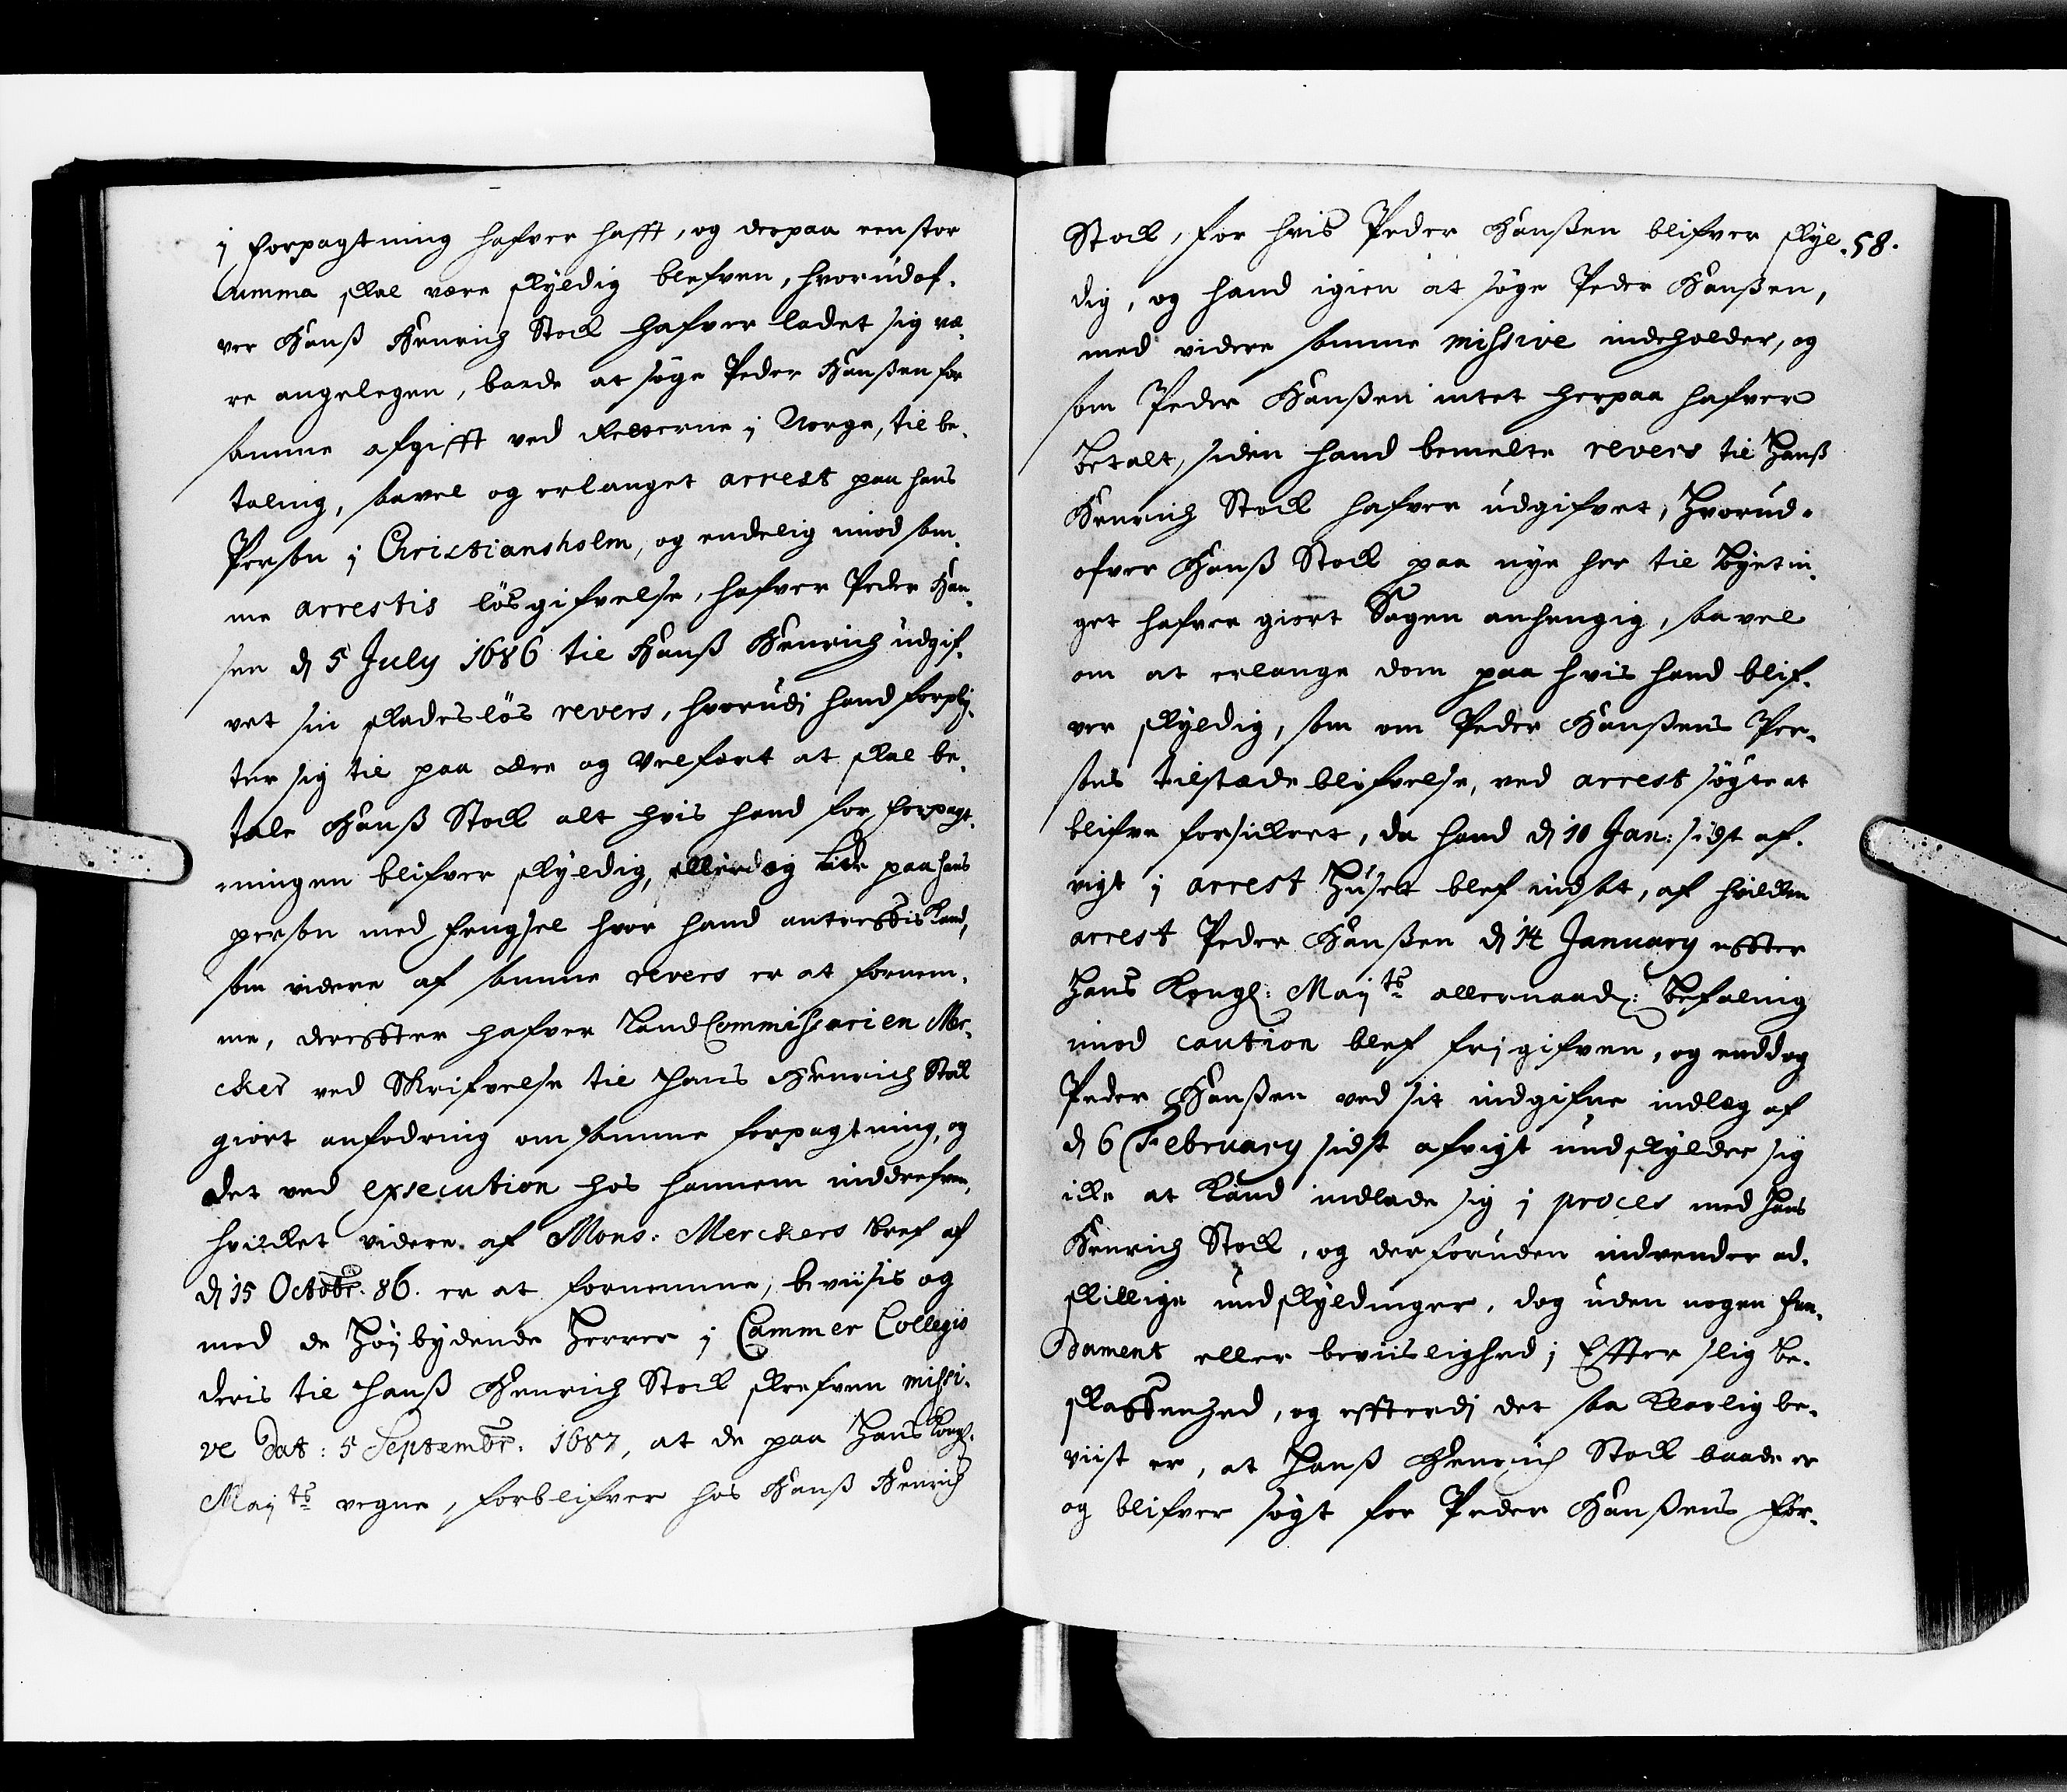 j forpagtning hafver hafft, og derpaa een stor
summa skal være skyldig blefven, hvorudof-
ver Hanß Henrich Stock hafver ladet sig væ-
re angelegen, baade at søge Peder Hanßen for
samme afgifft ved Retterne j Norge, til be-
taling, saavel og erlanget arrest paa hans
Person j Christiansholm, og endelig imod sam-
me arrestis løsgifvelse, hafver Peder Han-
sen d 5 July 1686 til Hanß Henrich udgif-
vet sin skadesløs revers, hvorudj hand forplig-
ter sig til paa ære og Velfært at skal be-
tale Hanß Stock alt hvis hand for forpagt-
ningen blifver skyldig, eller dog lide paa hans
person med fengsel hvor hand antreffis kand,
som videre af samme revers er at fornem-
me, dereffter hafver Land Commissarien Mer-
cker ved Skrifvelse til Hans Henrich Stock
giort anfodring om samme forpagtning, og
det ved execution hos hannem inddrefven,
hvilcket videre af Mons: Merckers bref af
d 15 Octobr. 86. er at fornemme, beviisis og
med de Høybydende Herrer j Cammer Collegio
deris til Hanß Henrich Stock skrefven missi-
ve Dat: 5 Septembr. 1687, at de paa Hans Kongl.
Maj ts vegne, forblifver hos Hanß Henrich
58.
Stock, for hvis Peder Hanßen blifver skyl-
dig, og hand igien at søge Peder Hanßen,
med videre samme missive indeholder, og
som Peder Hanßen intet herpaa hafver
betalt, siden hand bemelte revers til Hanß
Henrich Stock hafver udgifvet, Hvorud-
ofver Hanß Stock paa nye her til Byetin-
get hafver giort Sagen anhengig, saavel
om at erlange dom paa hvis hand blif-
ver skyldig, som om Peder Hanßens Per-
sons tilstæde blifvelse, ved arrest søgte at
blifve forsickret, da hand d 10 Jan: sidst af-
vigt j arrest Huset blef indsat, af hvilcken
arrest Peder Hanßen d 14 January effter
Hans Kongl: Maj ts allernaad: Befaling
imod caution blef frj gifven, og enddog
Peder Hanßen ved sit indgifne indlæg af
d 6 February sidst afvigt undskylder sig
icke at kand indlade sig j proces med Hans
Henrich Stock, og derforuden indvender ad-
skillige undskyldninger, dog uden nogen fun-
dament eller beviislighed; Effter slig be-
skaffenhed, og effterdj det saa klarlig be-
viist er, at Hanß Henrich Stock baade er
og blifver søgt for Peder Hanßens for-